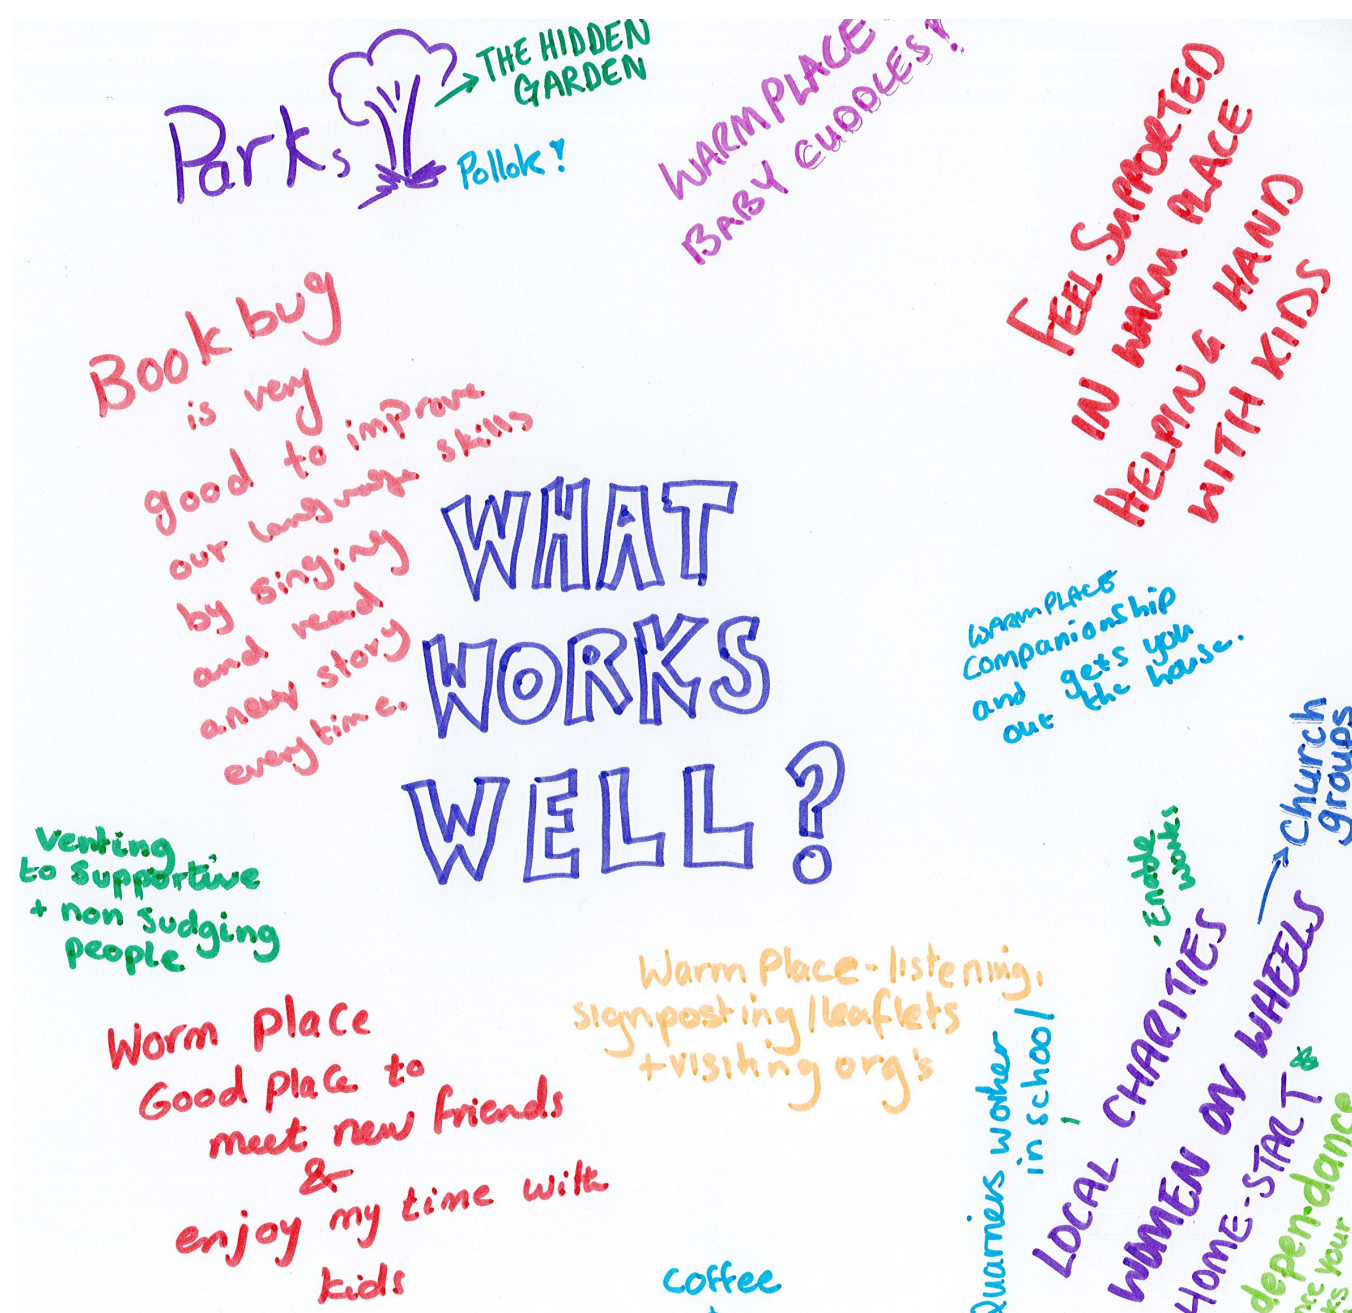 Parks
THE HIDDEN
GARDEN
Pollok!
WARM PLACE
BABY CUDDLES!
FEEL SUPPORTED
IN WARM PLACE
HELPING HAND
WITH KIDS
Bookbug
is very
good to improve
our language skills
by singing
and read
a new story
every time.
WHAT
WORKS
WELL?
WARM PLACE
Companionship
and gets you
out the house.
Church
groups
venting
to supportive
+ non judging
people
Worm place
Good place to
meet new friends
&
enjoy my time with
kids
Warm Place - listening,
signposting/leaflets
+ visiting org's
coffee
Quarriers worker
in school
· Enable
works
LOCAL CHARITIES
WOMEN ON WHEELS
HOME-START
depen·dance
your